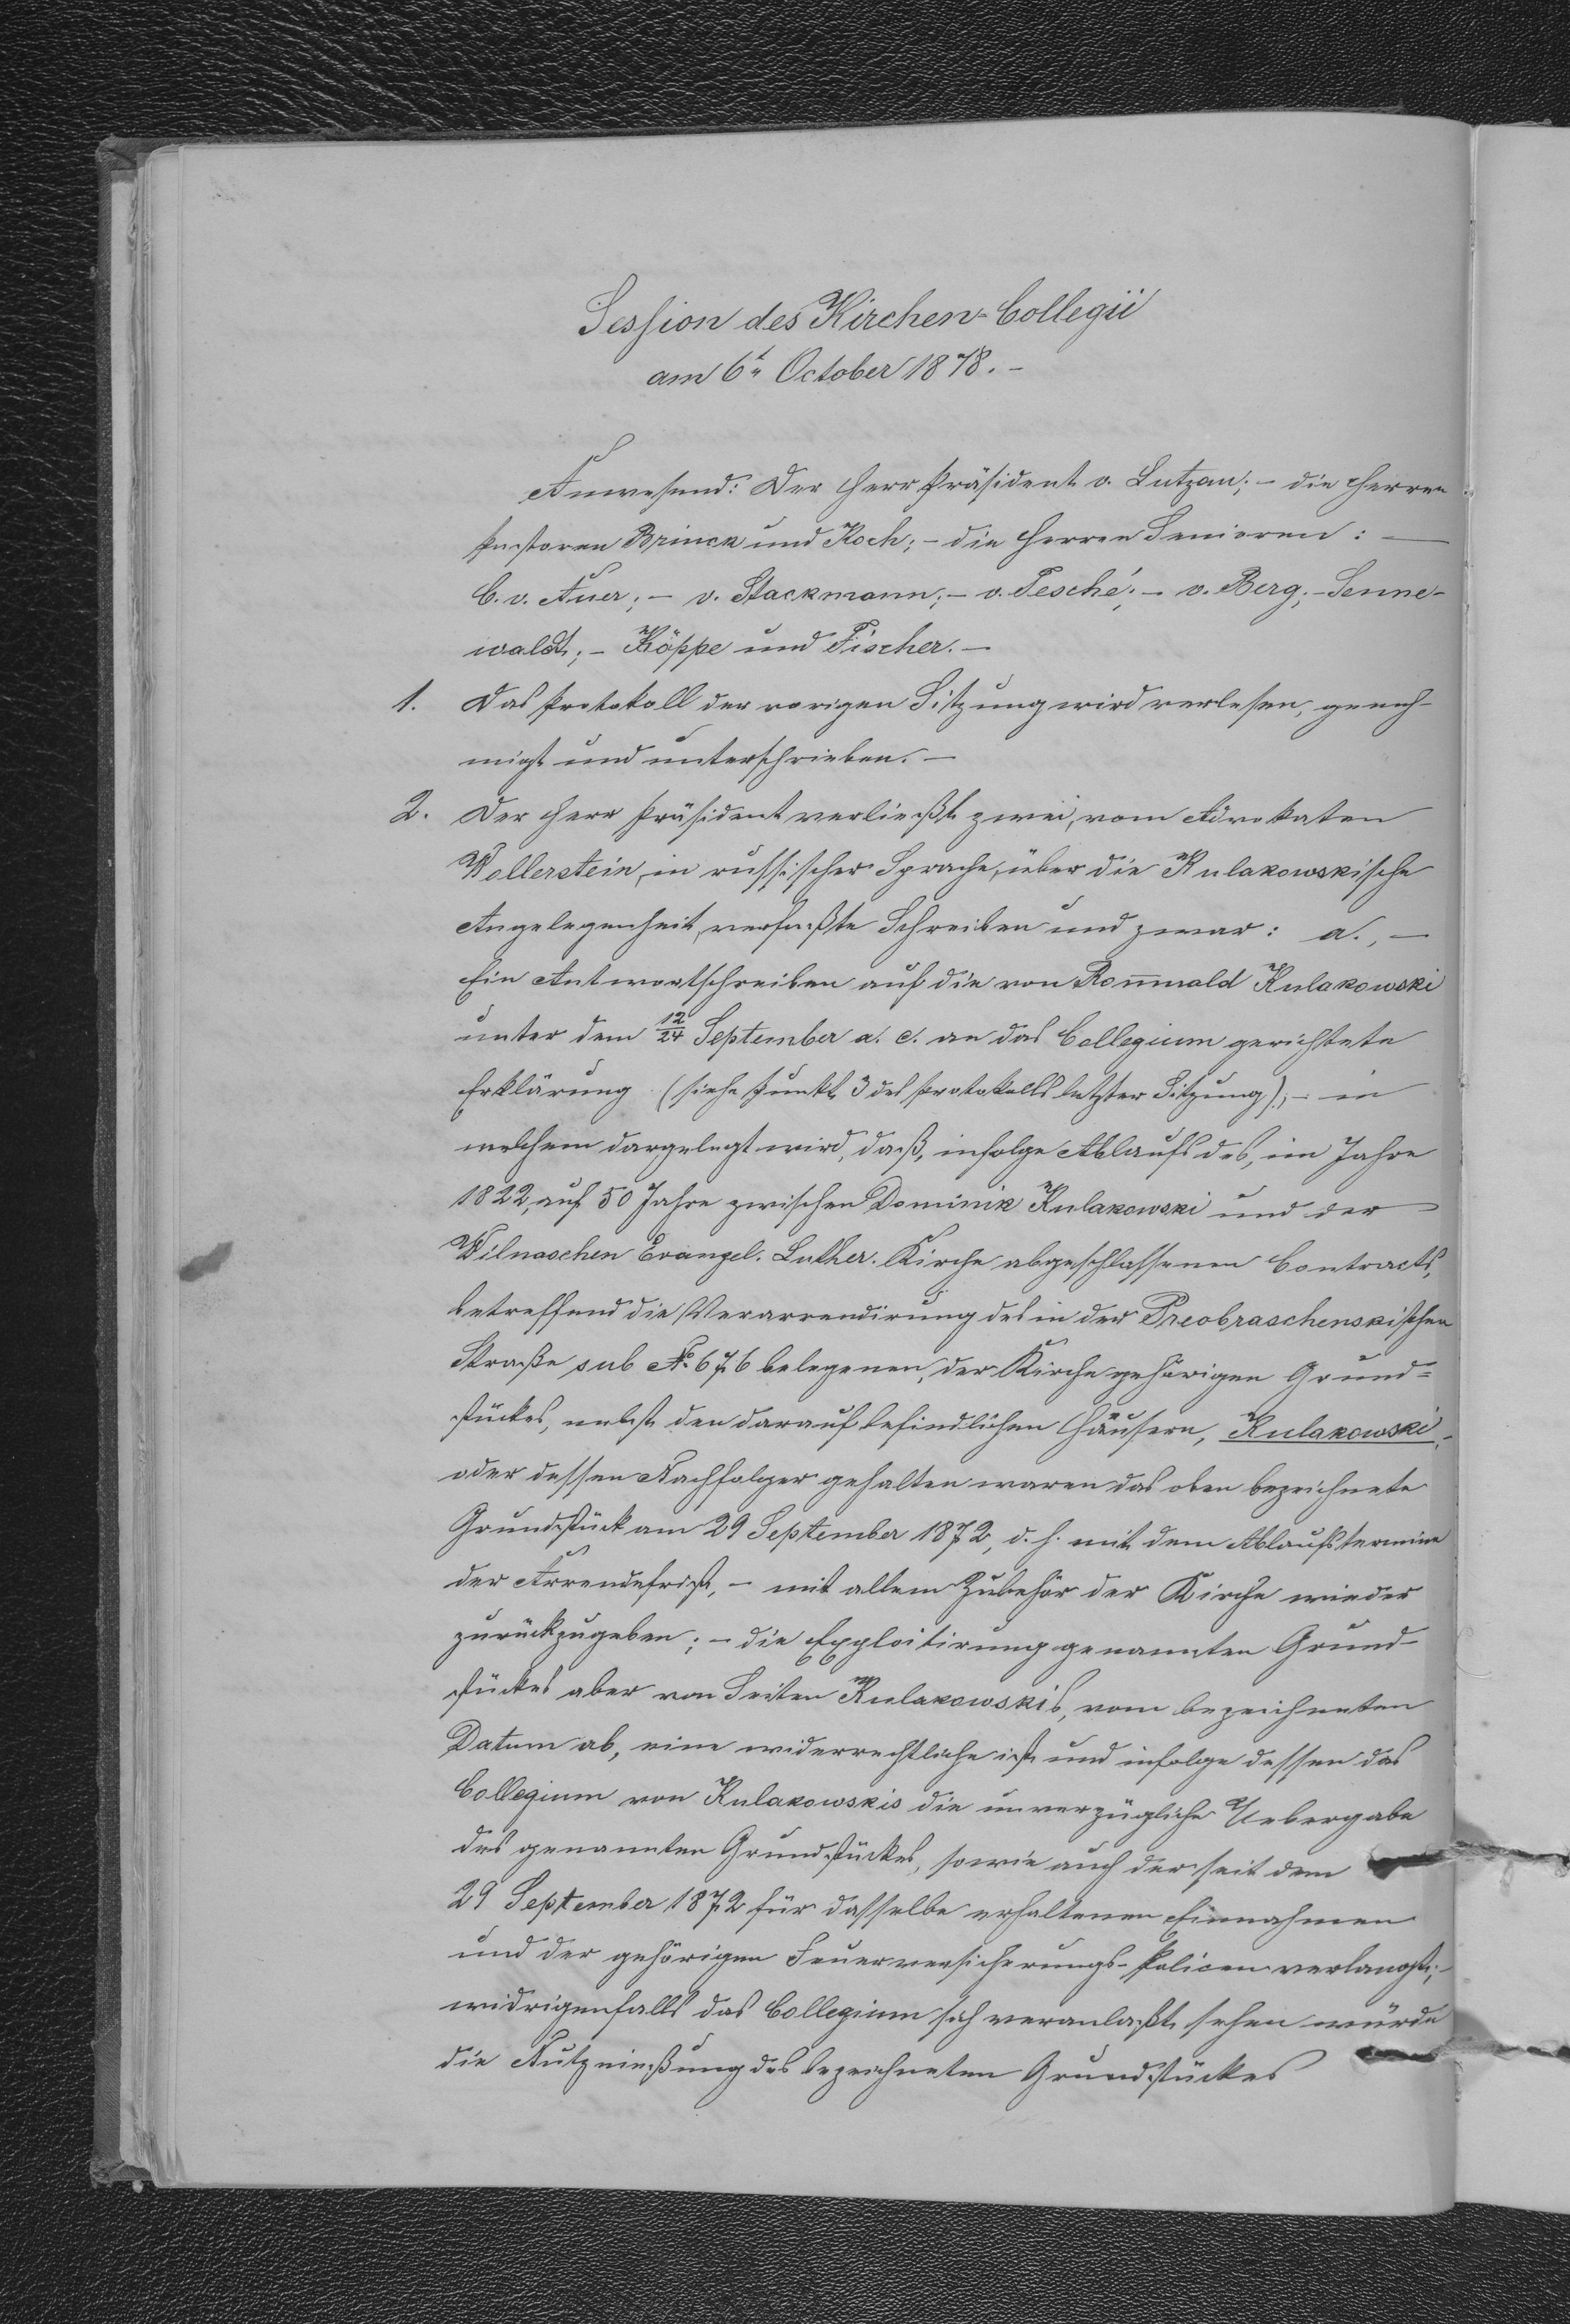 Session des Kirchen-Collegii
am 6t. October 1878. -
Anwesend: Der Herr Präsident v. Lutzau; - die Herren
Pastoren Brinck und Koch; - die Herren Senioren: -
C. v. Auer; - v. Stackmann; - v. Pesché; - v. Berg; - Senne-
waldt; - Köppe und Fischer. -
1. Das Protokoll der vorigen Sitzung wird verlesen, geneh-
migt und unterschrieben. -
2. Der Herr Präsident verließt zwei, vom Advokaten
Wollerstein, in russischer Sprache, über die Kulakowskische
Angelegenheit, verfaßte Schreiben und zwar: a., -
Ein Antwortschreiben auf die von Romuald Kulakowski
unter dem 12/24 September a. c. an das Collegium gerichtete
Erklärung (siehe Punkt 3 des Protokolls letzter Sitzung), - in
welchem dargelegt wird, daß, infolge Ablaufs des, im Jahre
1822, auf 50 Jahre zwischen Dominik Kulakowski und der
Wilnaschen Evangel. Luther. Kirche abgeschlossenen Contracts,
betreffend die Verarrendirung des in der Preobraschenskischen
Straße sub No. 676 belegenen, der Kirche gehörigen Grund=
stückes, nebst den darauf befindlichen Häusern, Kulakowski,
oder dessen Nachfolger gehalten waren das oben bezeichnete
Grundstück am 29 September 1872, d. h. mit dem Ablaufstermine
der Arrendefrist, - mit allem Zubehör der Kirche wieder
zurückzugeben; - die Exploitirung genannten Grund-
stückes aber von Seiten Kulakowskis, vom bezeichneten
Datum ab, eine widerrechtliche ist und infolge dessen das
Collegium von Kulakowskis die unverzügliche Uebergabe
des genannten Grundstückes, sowie auch der seit dem
29 September 1872 für dasselbe erhaltenen Einnahmen
und der gehörigen Feuerversicherungs-Policen verlangt; -
widrigenfalls das Collegium sich veranlaßt sehen würde
die Nutznießung des bezeichneten Grundstückes